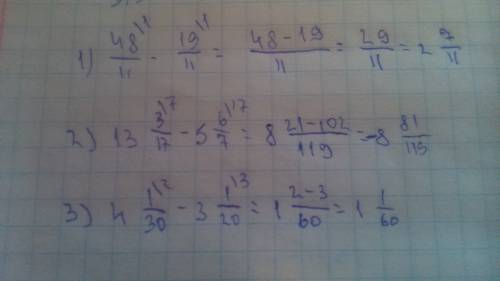 1) 48/11 \11 - 19/11 \11 = 48-19/11 = 29/11 = 2 7/11
2) 13 3/17 \7 - 5 6/7 \17 = 8 21-102/119 = -8 81/119
3) 4 1/30 \2 - 3 1/20 \3 = 1 2-3/60 = 1 1/60